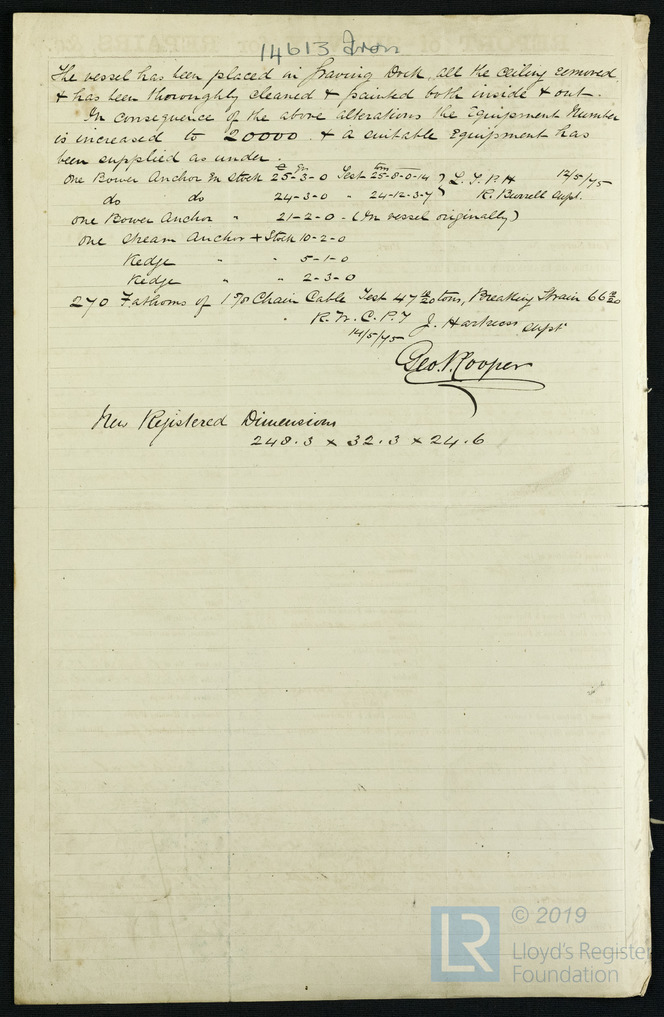 14613 Iron
The vessel has been placed in graving Dock, all the ceiling removed
& has been thoroughly cleaned & painted both inside & out.
In consequence of the above alterations the Equipment Number
is increased to 20000 & a suitable Equipment has
been supplied as under.
One Bower Anchor Ex Stock 25-3-0 Test 25-8-0-14 } L.T.P.H 12/5/75
do do 24-3-0 " 24-12-3-7 } R. Burrell Supt.
One Bower Anchor " 21-2-0 - (In vessel originally)
One Stream Anchor & Stock 10-2-0
Kedge " " 5-1-0
Kedge " " 2-3-0
270 Fathoms of 1 7/8 Chain Cable Test 47 /20 tons, Breaking Strain 66 /20
" R. W. C. P. J. Hartness Supt
14/5/75
Geo. N. Cooper
New Registered Dimensions
248.3 x 32.3 x 24.6
LR © 2019
Lloyd's Register
Foundation